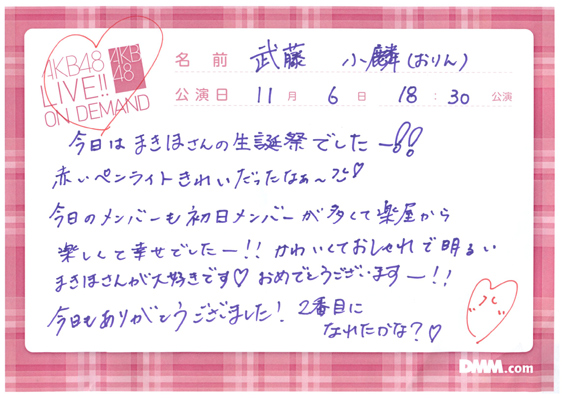 AKB48
LIVE!!
ON DEMAND
AKB
48
名前 武藤 小麟(おりん)
公演日 11月 6日 18:30 公演
今日はまきほさんの生誕祭でしたー!!
赤いペンライトきれいだったなぁ〜
今日のメンバーも初日メンバーが多くて楽屋から
楽しくて幸せでしたー!! かわいくておしゃれで明るい
まきほさんが大好きです♡ おめでとうございますー!!
今日もありがとうございました! 2番目に
なれたかな?♡
DMM.com